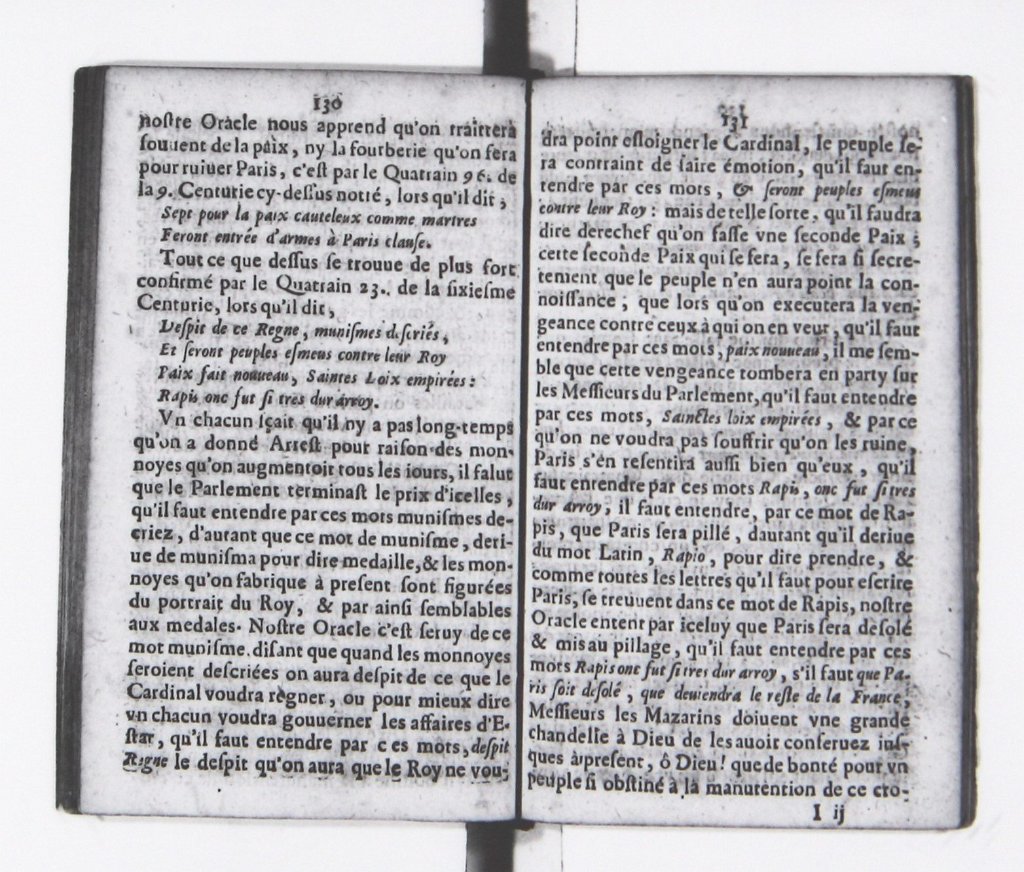 130
noſtre Oracle nous apprend qu'on traittera
ſouuent de la paix, ny la fourberie qu'on fera
pour ruiner Paris, c'eſt par le Quatrain 96. de
la 9. Centurie cy-deſſus notté, lors qu'il dit,
Sept pour la paix cauteleux comme martres
Feront entrée d'armes à Paris clauſe.
Tout ce que deſſus ſe trouue de plus fort
confirmé par le Quatrain 23. de la ſixieſme
Centurie, lors qu'il dit,
Deſpit de ce Regne, muniſmes deſcriés,
Et ſeront peuples eſmeus contre leur Roy
Paix fait nouueau, Saintes Loix empirées:
Rapis onc fut ſi tres dur arroy.
Vn chacun ſçait qu'il ny a pas long-temps
qu'on a donné Arreſt pour raiſon des mon-
noyes qu'on augmentoit tous les iours, il falut
que le Parlement terminaſt le prix d'icelles,
qu'il faut entendre par ces mots muniſmes de-
criez, d'autant que ce mot de muniſme, deri-
ue de muniſma pour dire medaille, & les mon-
noyes qu'on fabrique à preſent ſont figurées
du portrait du Roy, & par ainſi ſemblables
aux medales. Noſtre Oracle c'eſt ſeruy de ce
mot muniſme, diſant que quand les monnoyes
ſeroient deſcriées on aura deſpit de ce que le
Cardinal voudra regner, ou pour mieux dire
vn chacun voudra gouuerner les affaires d'E-
ſtat, qu'il faut entendre par ces mots, deſpit
Regne le deſpit qu'on aura que le Roy ne vou-
131
dra point eſloigner le Cardinal, le peuple ſe-
ra contraint de faire émotion, qu'il faut en-
tendre par ces mots, & ſeront peuples eſmeus
contre leur Roy: mais de telle ſorte, qu'il faudra
dire derechef qu'on faſſe vne ſeconde Paix;
cette ſeconde Paix qui ſe fera, ſe fera ſi ſecre-
tement que le peuple n'en aura point la con-
noiſſance, que lors qu'on executera la ven-
geance contre ceux à qui on en veut, qu'il faut
entendre par ces mots, paix nouueau, il me ſem-
ble que cette vengeance tombera en party ſur
les Meſſieurs du Parlement, qu'il faut entendre
par ces mots, Sainctes loix empirées, & parce
qu'on ne voudra pas ſouffrir qu'on les ruine,
Paris s'en reſentira auſſi bien qu'eux, qu'il
faut entendre par ces mots Rapis, onc fut ſi tres
dur arroy, il faut entendre, par ce mot de Ra-
pis, que Paris ſera pillé, dautant qu'il deriue
du mot Latin, Rapio, pour dire prendre, &
comme toutes les lettres qu'il faut pour eſcrire
Paris, ſe treuuent dans ce mot de Rapis, noſtre
Oracle entent par iceluy que Paris ſera deſolé
& mis au pillage, qu'il faut entendre par ces
mots Rapis onc fut ſi tres dur arroy, s'il faut que Pa-
ris ſoit deſolé, que deuiendra le reſte de la France,
Meſſieurs les Mazarins doiuent vne grande
chandelle à Dieu de les auoir conſeruez iuſ-
ques à preſent, ô Dieu! que de bonté pour vn
peuple ſi obſtiné à la manutention de ce cro-
I ij